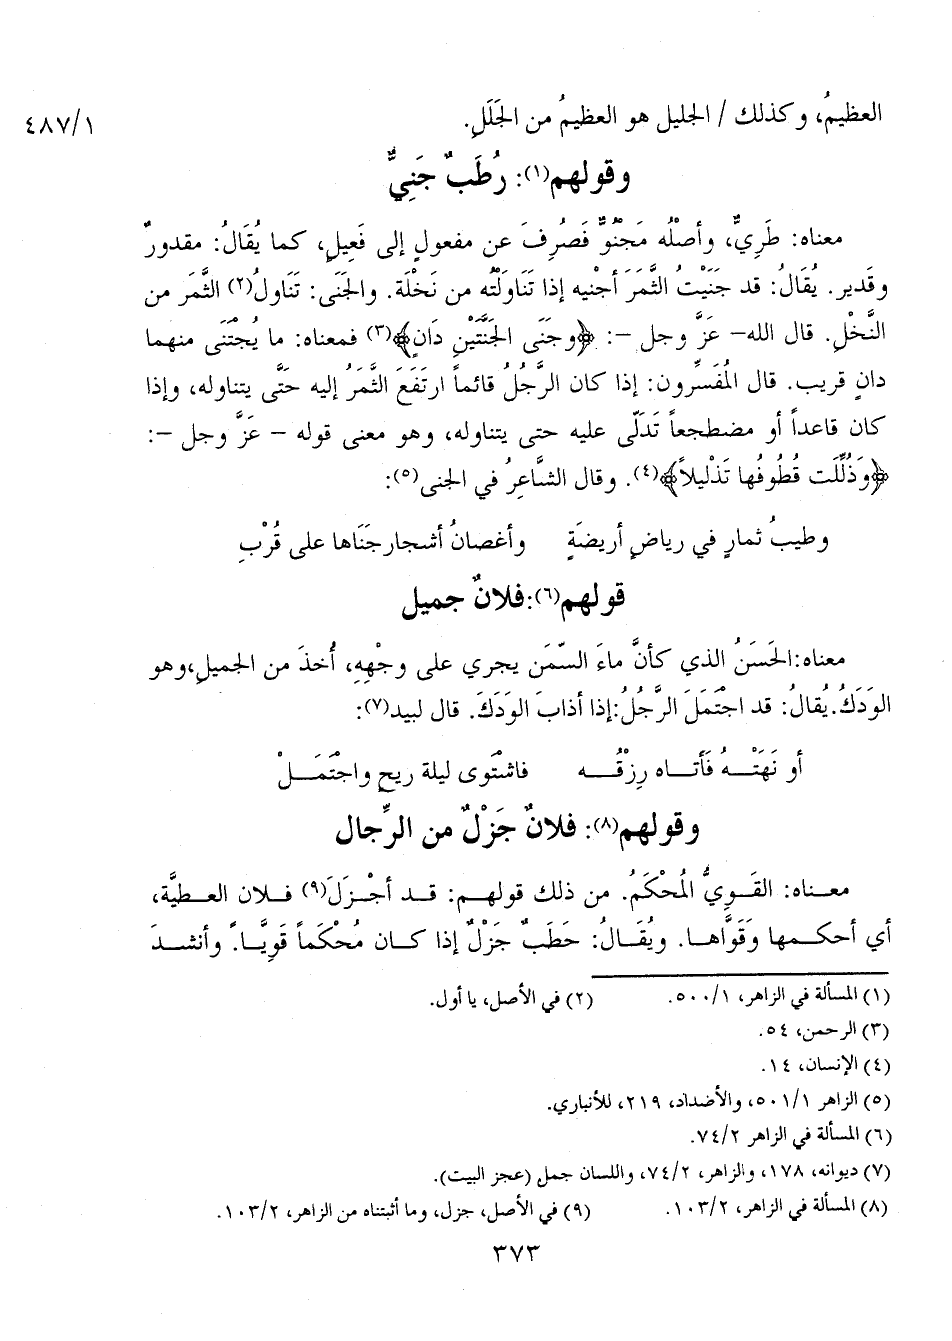 العظيمُ، وكذلك / الجليل هو العظيمُ من الجَلَلِ.
٤٨٧/١
وقولهم(١): رُطَبٌ جَنِيٌّ
معناه: طَرِيٌّ، وأصْلُه مَجْنُوٌّ فَصُرِفَ عن مفعولٍ إلى فَعِيلٍ، كما يُقَالُ: مقدورٌ
وقَدير. يُقَالُ: قد جَنَيْتُ الثَّمَرَ أجنْيه إذا تَنَاوَلْتُه من نَخْلَة. والجَنَى: تَنَاولُ(٢) الثَّمر من
النَّخْلِ. قال الله– عَزَّ وجل –: ﴿وجَنَى الجَنَّتَيْنِ دَانٍ﴾(٣) فمعناه: ما يُجْتَنَى منهما
دانٍ قريب. قال المُفَسِّرون: إذا كان الرَّجُلُ قائماً ارتَفَعَ الثَّمَرُ إليه حَتَّى يتناوله، وإذا
كان قاعداً أو مضطجعاً تَدَلّى عليه حتى يتناوله، وهو معنى قوله – عَزَّ وجل –:
﴿وَذُلِّلَت قُطُوفُها تَذْلِيلاً﴾(٤). وقال الشَّاعِرُ في الجنى(٥):
وطيبُ ثمارٍ في رياضٍ أريضَةٍ وأغصانُ أشجارجَنَاها على قُرْبِ
قولهم(٦):فلانٌ جميل
معناه:الحَسَنُ الذي كأنَّ ماءَ السّمَن يجري على وجْهِهِ، أُخذَ من الجميلِ،وهو
الوَدَكُ.يُقالُ: قد اجتَمَلَ الرَّجُلُ:إذا أذابَ الوَدَكَ. قال لبيد(٧):
أو نَهَتْـــهُ فَأتـــاه رِزْقُـــه فاشتَوى ليلة ريحٍ واجتَمَـــلْ
وقولهم(٨): فلانٌ جَزْلٌ من الرِّجال
معـناه: القَـوِيُّ المُحْكَمُ. من ذلك قولهـم: قـد أجْـزَلَ(٩) فـلان العـطيَّة،
أي أحكـمها وَقَوَّاهـا. ويُقَـالُ: حَطَبٌ جَزْلٌ إذا كـان مُحْكَماً قَويًّـا. وأنشـدَ
(١) المسألة في الزاهر، ٥٠٠/١. (٢) في الأصل، يا أول.
(٣) الرحمن، ٥٤.
(٤) الإنسان، ١٤.
(٥) الزاهر ٥٠١/١، والأضداد، ٢١٩، للأنباري.
(٦) المسألة في الزاهر ٧٤/٢.
(٧) ديوانه، ١٧٨، والزاهر، ٧٤/٢، واللسان جمل (عجز البيت).
(٨) المسألة في الزاهر، ١٠٣/٢. (٩) في الأصل، جزل، وما أثبتناه من الزاهر، ١٠٣/٢.
٣٧٣